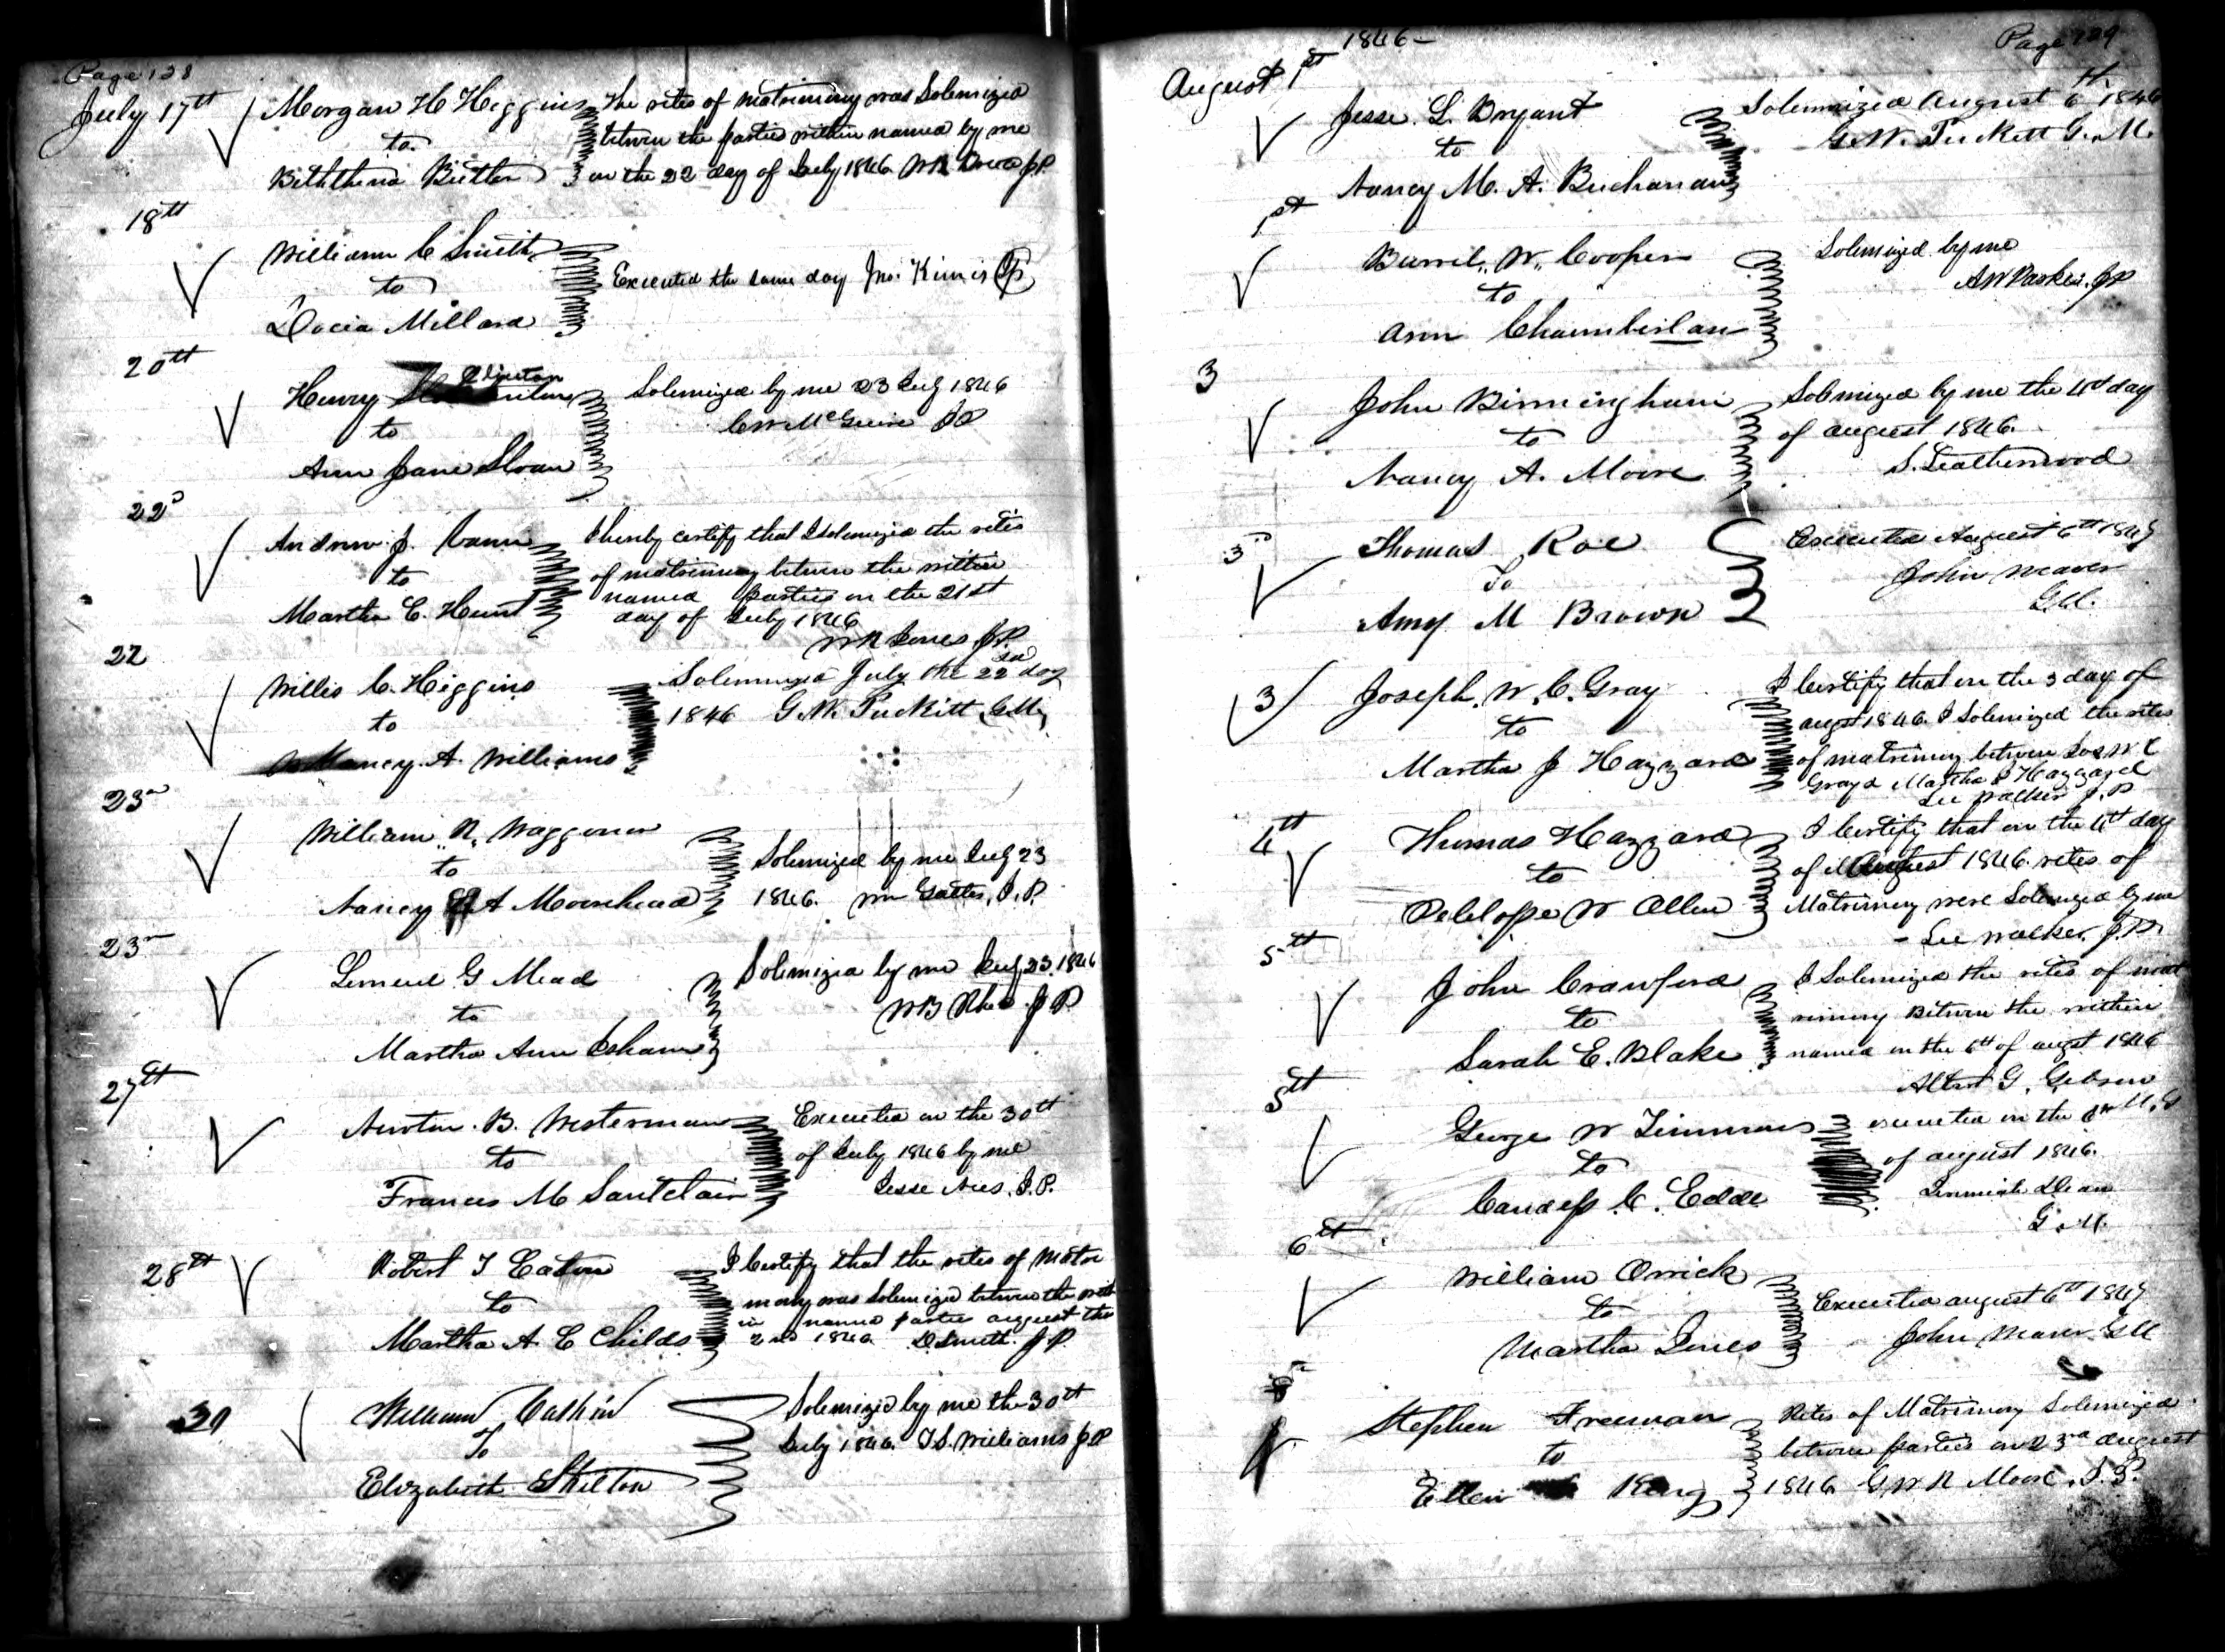 Page 128
July 17th Morgan H Higgins The rites of matrimony was Solemnized
to between the parties within named by me
Biththena Butler on the 22 day of July 1846 W R Jones JP
18th
William C Smith
to Executed the same day Jno. Kim JP
Docia Millard
20th
Henry Clinton Solemnized by me 23 July 1846
to C W McGuire JP
Ann Jane Sloan
22d
Andrew J. Vann I hereby certify that I solemnized the rites
to of matrimony between the within
Martha C. Hunt named parties on the 21st
day of July 1846
W R Jones J.P.
22
Willis C. Higgins Solemnized July the 22nd day
to 1846 G. W. Puckitt G.M.
Nancy. A. Williams
23rd
William R. Waggoner
to Solemnized by me July 23
Nancy A Moorehead 1846. Wm Gattes, J.P.
23rd
Lemuel G Mead Solemnized by me July 23. 1846
to W B Rhea J P
Martha Ann Isham
27th
Newton. B. Westerman Executed on the 30th
to of July 1846 by me
Frances M Santclair Jesse J.P.
28th Robert T Eaton I Certify that the rites of Matri
to mony was Solemnized between the with
Martha A. C Childs in named parties august the
2nd 1846. D Smith. J P.
30 William Calkin Solemnized by me the 30th
To July 1846. T S. Williams J P
Elizabeth Skilton
1846- Page 129
August 1st
Jesse. L. Bryant Solemnized August 6th 1846
to G. W. Puckett G. M.
Nancy M. A. Buchanan
1st
Burril. W. Cooper Solemnized by me
to A W Parker. JP
Ann Chamberlan
3
John Birmingham Solemnized by me the 4th day
to of august 1846.
Nancy A. Moore S. Leatherwood
3d Thomas Roe Executed August 6th 1847
To John Weaver
Amy M Brown G.M.
3 Joseph. W. C. Gray I Certify that on the 3 day of
to augst 1846. I Solemnized the rites
Martha J Hazzard of matrimony between Jos W C
Gray & Martha J Hazzard
Lee Walker J.P
4th Thomas Hazzard I Certify that on the 4th day
to of August 1846 rites of
Pelelope W Allen Matrimony were Solemnized by me
- Lee Walker. J.P.
5th
John Crawford I Solemnized the rites of mat
to rimony Between the within
Sarah E. Blake named on the 6th of augst 1846
Albert G. Gibson
M. G
5th
George W Timmons executed on the
to of august 1846.
Candess C. Edde Jeremiah Dean
G. M.
6th
William Orrick
to Executed august 6th 1847
Martha Jones John Weaver GM
Stephen Freeman Rites of Matrimony Solemnized
to between parties on 23rd august
Ellen King 1846 G W R Moore. J.P.